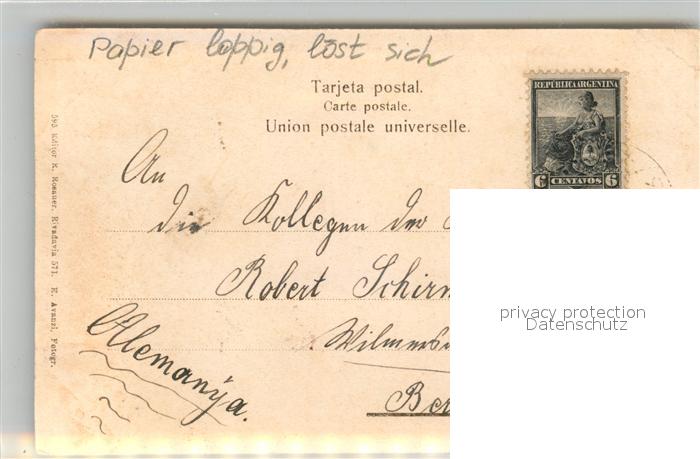 Papier lappig, löst sich
Tarjeta postal.
Carte postale.
Union postale universelle.
REPÚBLICA ARGENTINA
6 CENTAVOS 6
An
die Kollegen der
Robert Schirm
Wilmersd
Alemanja.
Ber
593 Editor R. Rosauer. Rivadavia 571. E. Avanzi, Fotogr.
privacy protection
Datenschutz